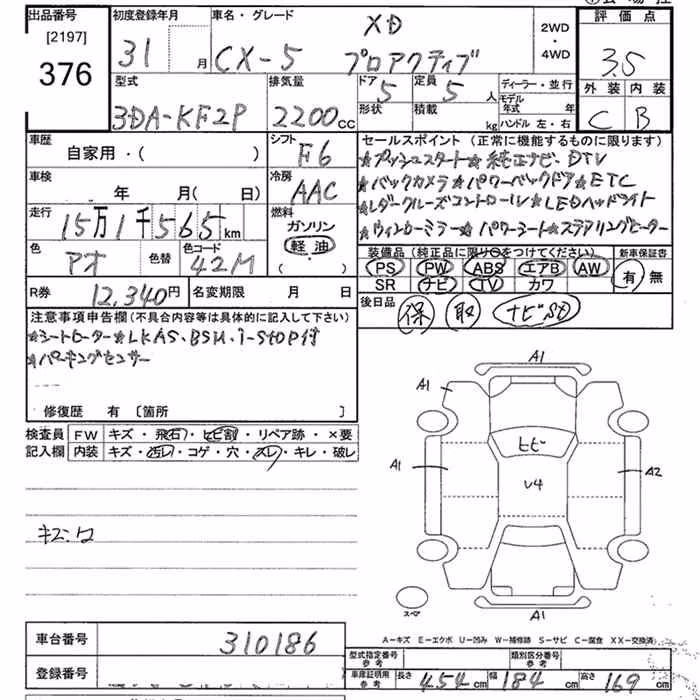 出品番号
[2197]
376
初度登録年月
31 月
車名・グレード
XD
CX-5 プロアクティブ
2WD
・
4WD
評価点
3.5
外装 内装
C B
型式
3DA-KF2P
排気量
2200cc
ドア
5
定員
5人
形状
積載
kg
ディーラー・並行
モデル年式 年
ハンドル 左・右
車歴
自家用・( )
シフト
F6
車検
年 月( 日)
冷房
AAC
走行
15万1千565km
燃料
ガソリン
軽油
( )
色
アオ
色替
色コード
42M
R券
12,340円
名変期限 月 日
セールスポイント(正常に機能するものに限ります)
★プッシュスタート★純正ナビ、DTV
★バックカメラ★パワーバックドア★ETC
★レーダークルーズコントロール★LEDヘッドライト
★ウィンカーミラー★パワーシート★ステアリングヒーター
装備品(純正品に限り○をつけてください)
新車保証書
PS PW ABS エアB AW
SR ナビ TV カワ
有 無
後日品
保 取 ナビSD
注意事項申告欄(不具合内容等は具体的に記入して下さい)
★シートヒーター★LKAS、BSM、i-STOP付
★パーキングセンサー
修復歴 有 [箇所 ]
検査員
記入欄
FW キズ・飛石・ヒビ割・リペア跡・×要
内装 キズ・汚レ・コゲ・穴・スレ・キレ・破レ
A1
A1
ヒビ
A1
U4
A2
スペア
A1
A-キズ E-エクボ U-凹み W-補修跡 S-サビ C-腐食 XX-交換済
車台番号
310186
登録番号
型式指定番号
参考
類別区分番号
参考
車庫証明用
参考
長さ 454cm 幅 184cm 高さ 169cm